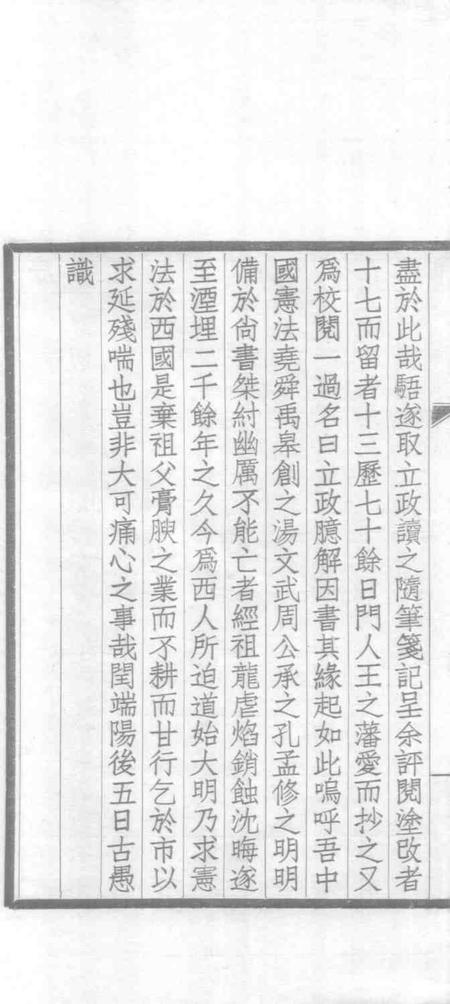 盡於此哉䮏遂取立政讀之隨筆箋記呈余評閱塗改者
十七而留者十三歷七十餘日門人王之藩愛而抄之又
爲校閱一過名曰立政臆解因書其緣起如此嗚呼吾中
國憲法堯舜禹皋創之湯文武周公承之孔孟修之明明
備於尙書桀紂幽厲不能亡者經祖龍虐焰銷蝕沈晦遂
至湮埋二千餘年之久今爲西人所迫道始大明乃求憲
法於西國是棄祖父膏腴之業而不耕而甘行乞於市以
求延殘喘也豈非大可痛心之事哉閏端陽後五日古愚
識